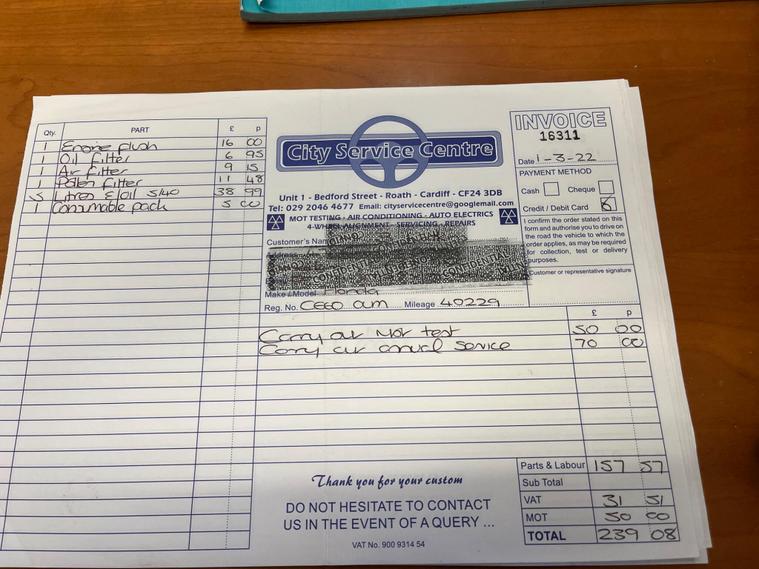 Qty. PART £ p
1 Engine flush 16 00
1 Oil filter 6 95
1 Air filter 9 15
1 Pollen filter 11 48
5 Litres E/oil 5/40 38 99
1 Consumable pack 5 00
City Service Centre
Unit 1 - Bedford Street - Roath - Cardiff - CF24 3DB
Tel: 029 2046 4677 Email: cityservicecentre@googlemail.com
MOT TESTING - AIR CONDITIONING - AUTO ELECTRICS
4-WHEEL ALIGNMENT - SERVICING - REPAIRS
Customer's Name
Make / Model Honda
Reg. No. CE60 Mileage 40229
INVOICE
16311
Date 1-3-22
PAYMENT METHOD
Cash Cheque
Credit / Debit Card
I confirm the order stated on this
form and authorise you to drive on
the road the vehicle to which the
order applies, as may be required
for collection, test or delivery
purposes.
Customer or representative signature
£ p
Carry out Mot test 50 00
Carry out annual service 70 00
Thank you for your custom
DO NOT HESITATE TO CONTACT
US IN THE EVENT OF A QUERY ...
VAT No. 900 9314 54
Parts & Labour 157 57
Sub Total
VAT 31 51
MOT 50 00
TOTAL 239 08